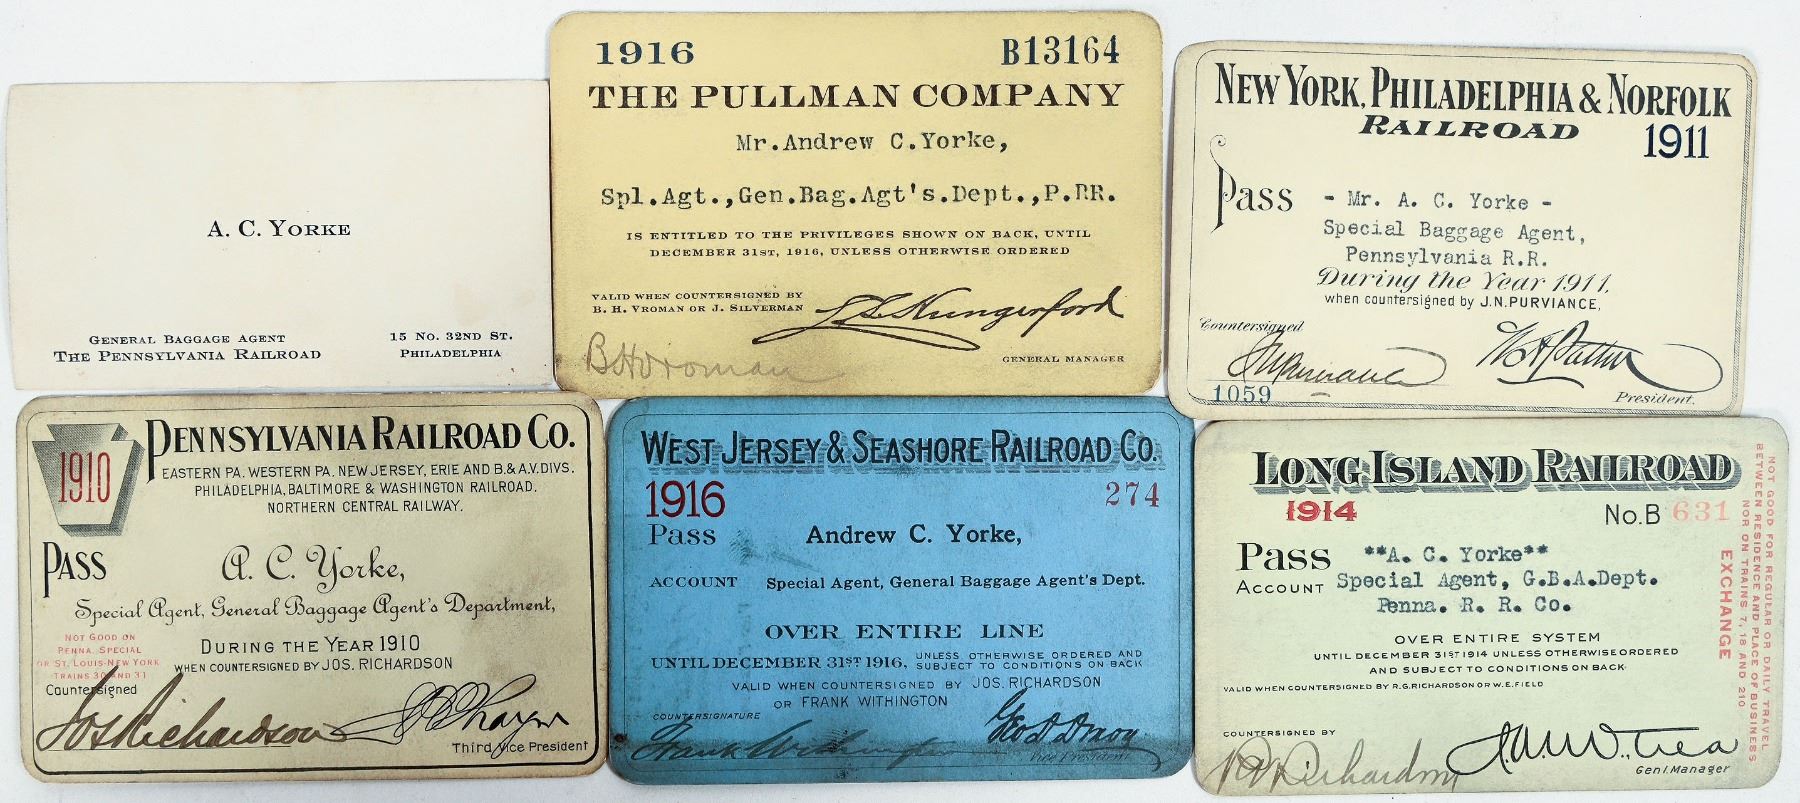 A. C. YORKE
GENERAL BAGGAGE AGENT
THE PENNSYLVANIA RAILROAD
15 NO. 32ND ST.
PHILADELPHIA
1916 B13164
THE PULLMAN COMPANY
Mr.Andrew C.Yorke,
Spl.Agt.,Gen.Bag.Agt's.Dept.,P.RR.
IS ENTITLED TO THE PRIVILEGES SHOWN ON BACK, UNTIL
DECEMBER 31ST, 1916, UNLESS OTHERWISE ORDERED
VALID WHEN COUNTERSIGNED BY
B. H. VROMAN OR J. SILVERMAN
L.S. Hungerford
BHVroman
GENERAL MANAGER
NEW YORK, PHILADELPHIA & NORFOLK
RAILROAD 1911
Pass - Mr. A. C. Yorke -
Special Baggage Agent,
Pennsylvania R.R.
During the Year 1911,
when countersigned by J.N.PURVIANCE,
Countersigned
JNPurviance
1059
President.
1910
PENNSYLVANIA RAILROAD CO.
EASTERN PA. WESTERN PA. NEW JERSEY, ERIE AND B.& A.V. DIVS.
PHILADELPHIA, BALTIMORE & WASHINGTON RAILROAD.
NORTHERN CENTRAL RAILWAY.
PASS
A. C. Yorke,
Special Agent, General Baggage Agent's Department,
NOT GOOD ON
PENNA. SPECIAL
OR ST. LOUIS-NEW YORK
TRAINS 30 AND 31
DURING THE YEAR 1910
WHEN COUNTERSIGNED BY JOS. RICHARDSON
Countersigned
Jos Richardson
Third Vice President
WEST JERSEY & SEASHORE RAILROAD CO.
1916 274
Pass Andrew C. Yorke,
ACCOUNT Special Agent, General Baggage Agent's Dept.
OVER ENTIRE LINE
UNTIL DECEMBER 31ST 1916, UNLESS OTHERWISE ORDERED AND
SUBJECT TO CONDITIONS ON BACK
VALID WHEN COUNTERSIGNED BY JOS. RICHARDSON
OR FRANK WITHINGTON
COUNTERSIGNATURE
Frank Withington
Vice President
LONG ISLAND RAILROAD
1914 No.B 631
Pass **A. C. Yorke**
ACCOUNT Special Agent, G.B.A.Dept.
Penna. R. R. Co.
OVER ENTIRE SYSTEM
UNTIL DECEMBER 31ST 1914 UNLESS OTHERWISE ORDERED
AND SUBJECT TO CONDITIONS ON BACK
VALID WHEN COUNTERSIGNED BY R.G.RICHARDSON OR W.E.FIELD
COUNTERSIGNED BY
Genl.Manager
NOT GOOD FOR REGULAR OR DAILY TRAVEL
BETWEEN RESIDENCE AND PLACE OF BUSINESS
NOR ON TRAINS 7, 18 AND 210
EXCHANGE